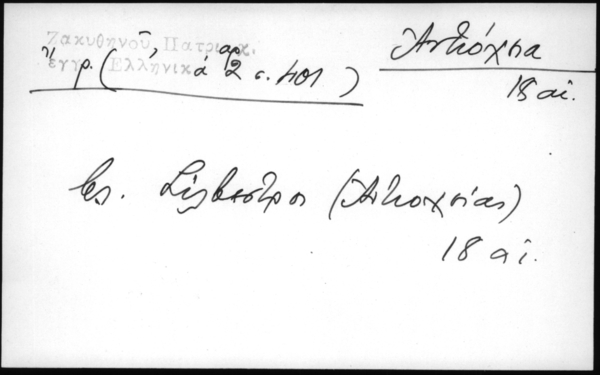 Ζακυθηνοῦ, Πατριαρχ.
ἔγγρ. Ἑλληνικὰ
ἀρ 2 σ. 401)
Ἀντιόχεια
18 αἰ.
Σίλβεστρος (Ἀντιοχείας)
18 αἰ.